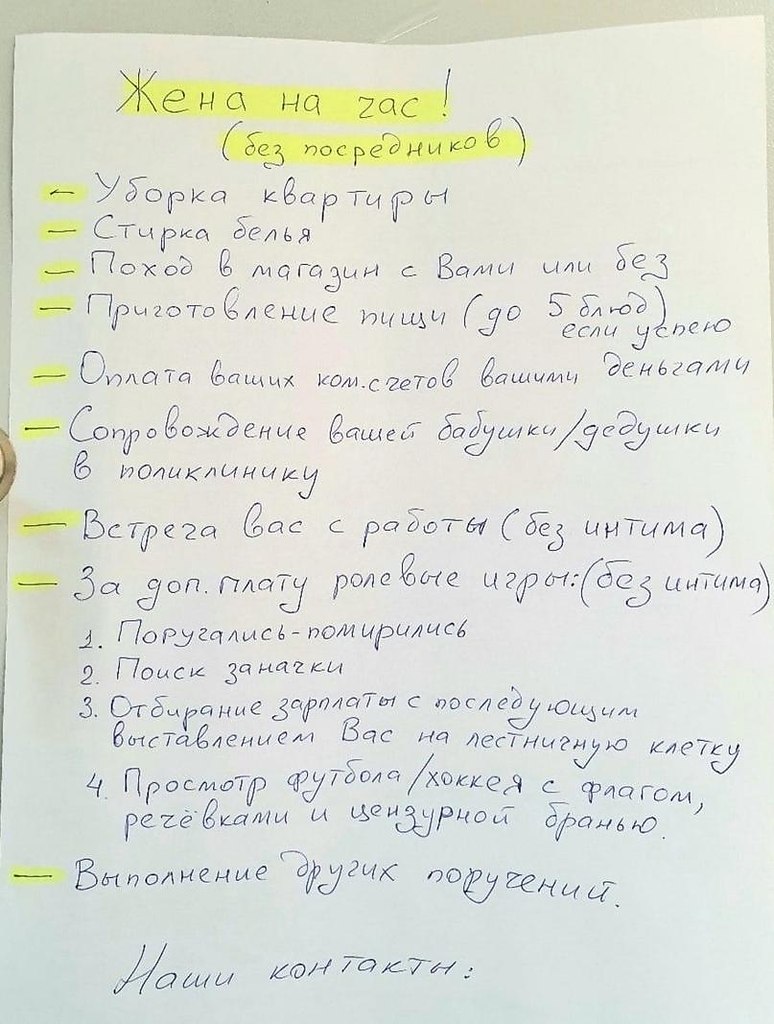 Жена на час!
(без посредников)
— Уборка квартиры
— Стирка белья
— Поход в магазин с Вами или без
— Приготовление пищи (до 5 блюд)
если успею
— Оплата ваших ком.счетов вашими деньгами
— Сопровождение вашей бабушки/дедушки
в поликлинику
— Встреча вас с работы (без интима)
— За доп.плату ролевые игры:(без интима)
1. Поругались-помирились
2. Поиск заначки
3. Отбирание зарплаты с последующим
выставлением Вас на лестничную клетку
4. Просмотр футбола/хоккея с флагом,
речёвками и цензурной бранью.
— Выполнение других поручений.
Наши контакты: